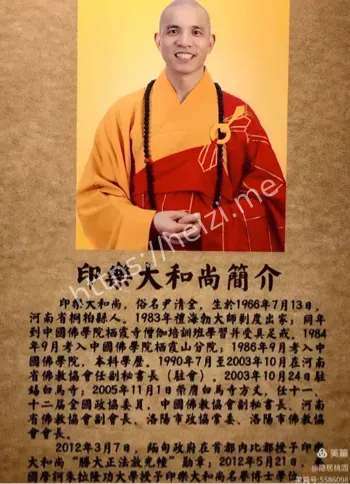 https://meizi.me
印樂大和尚簡介
印樂大和尚，俗名尹清全，生於1966年7月13日，
河南省桐柏縣人。1983年禮海勃大師剃度出家，同年
到中國佛學院栖霞寺僧伽培訓班學習并受具足戒，1984
年9月考入中國佛學院栖霞山分院；1986年9月考入中
國佛學院，本科學歷。1990年7月至2003年10月在河南
省佛教協會任副秘書長（駐會），2003年10月24日駐
錫白馬寺；2005年11月1日榮膺白馬寺方丈，任十一、
十二屆全國政協委員，中國佛教協會副秘書長、河南省
佛教協會副會長、洛陽市政協常委、洛陽市佛教協
會會長。
2012年3月7日，緬甸政府在首都内比都授予印樂
大和尚“勝大正法放光幢”勛章；2012年5月21日，
國摩訶朱拉隆功大學授予印樂大和尚名譽博士學位
美篇
@隨居桃园
美篇号:5586098